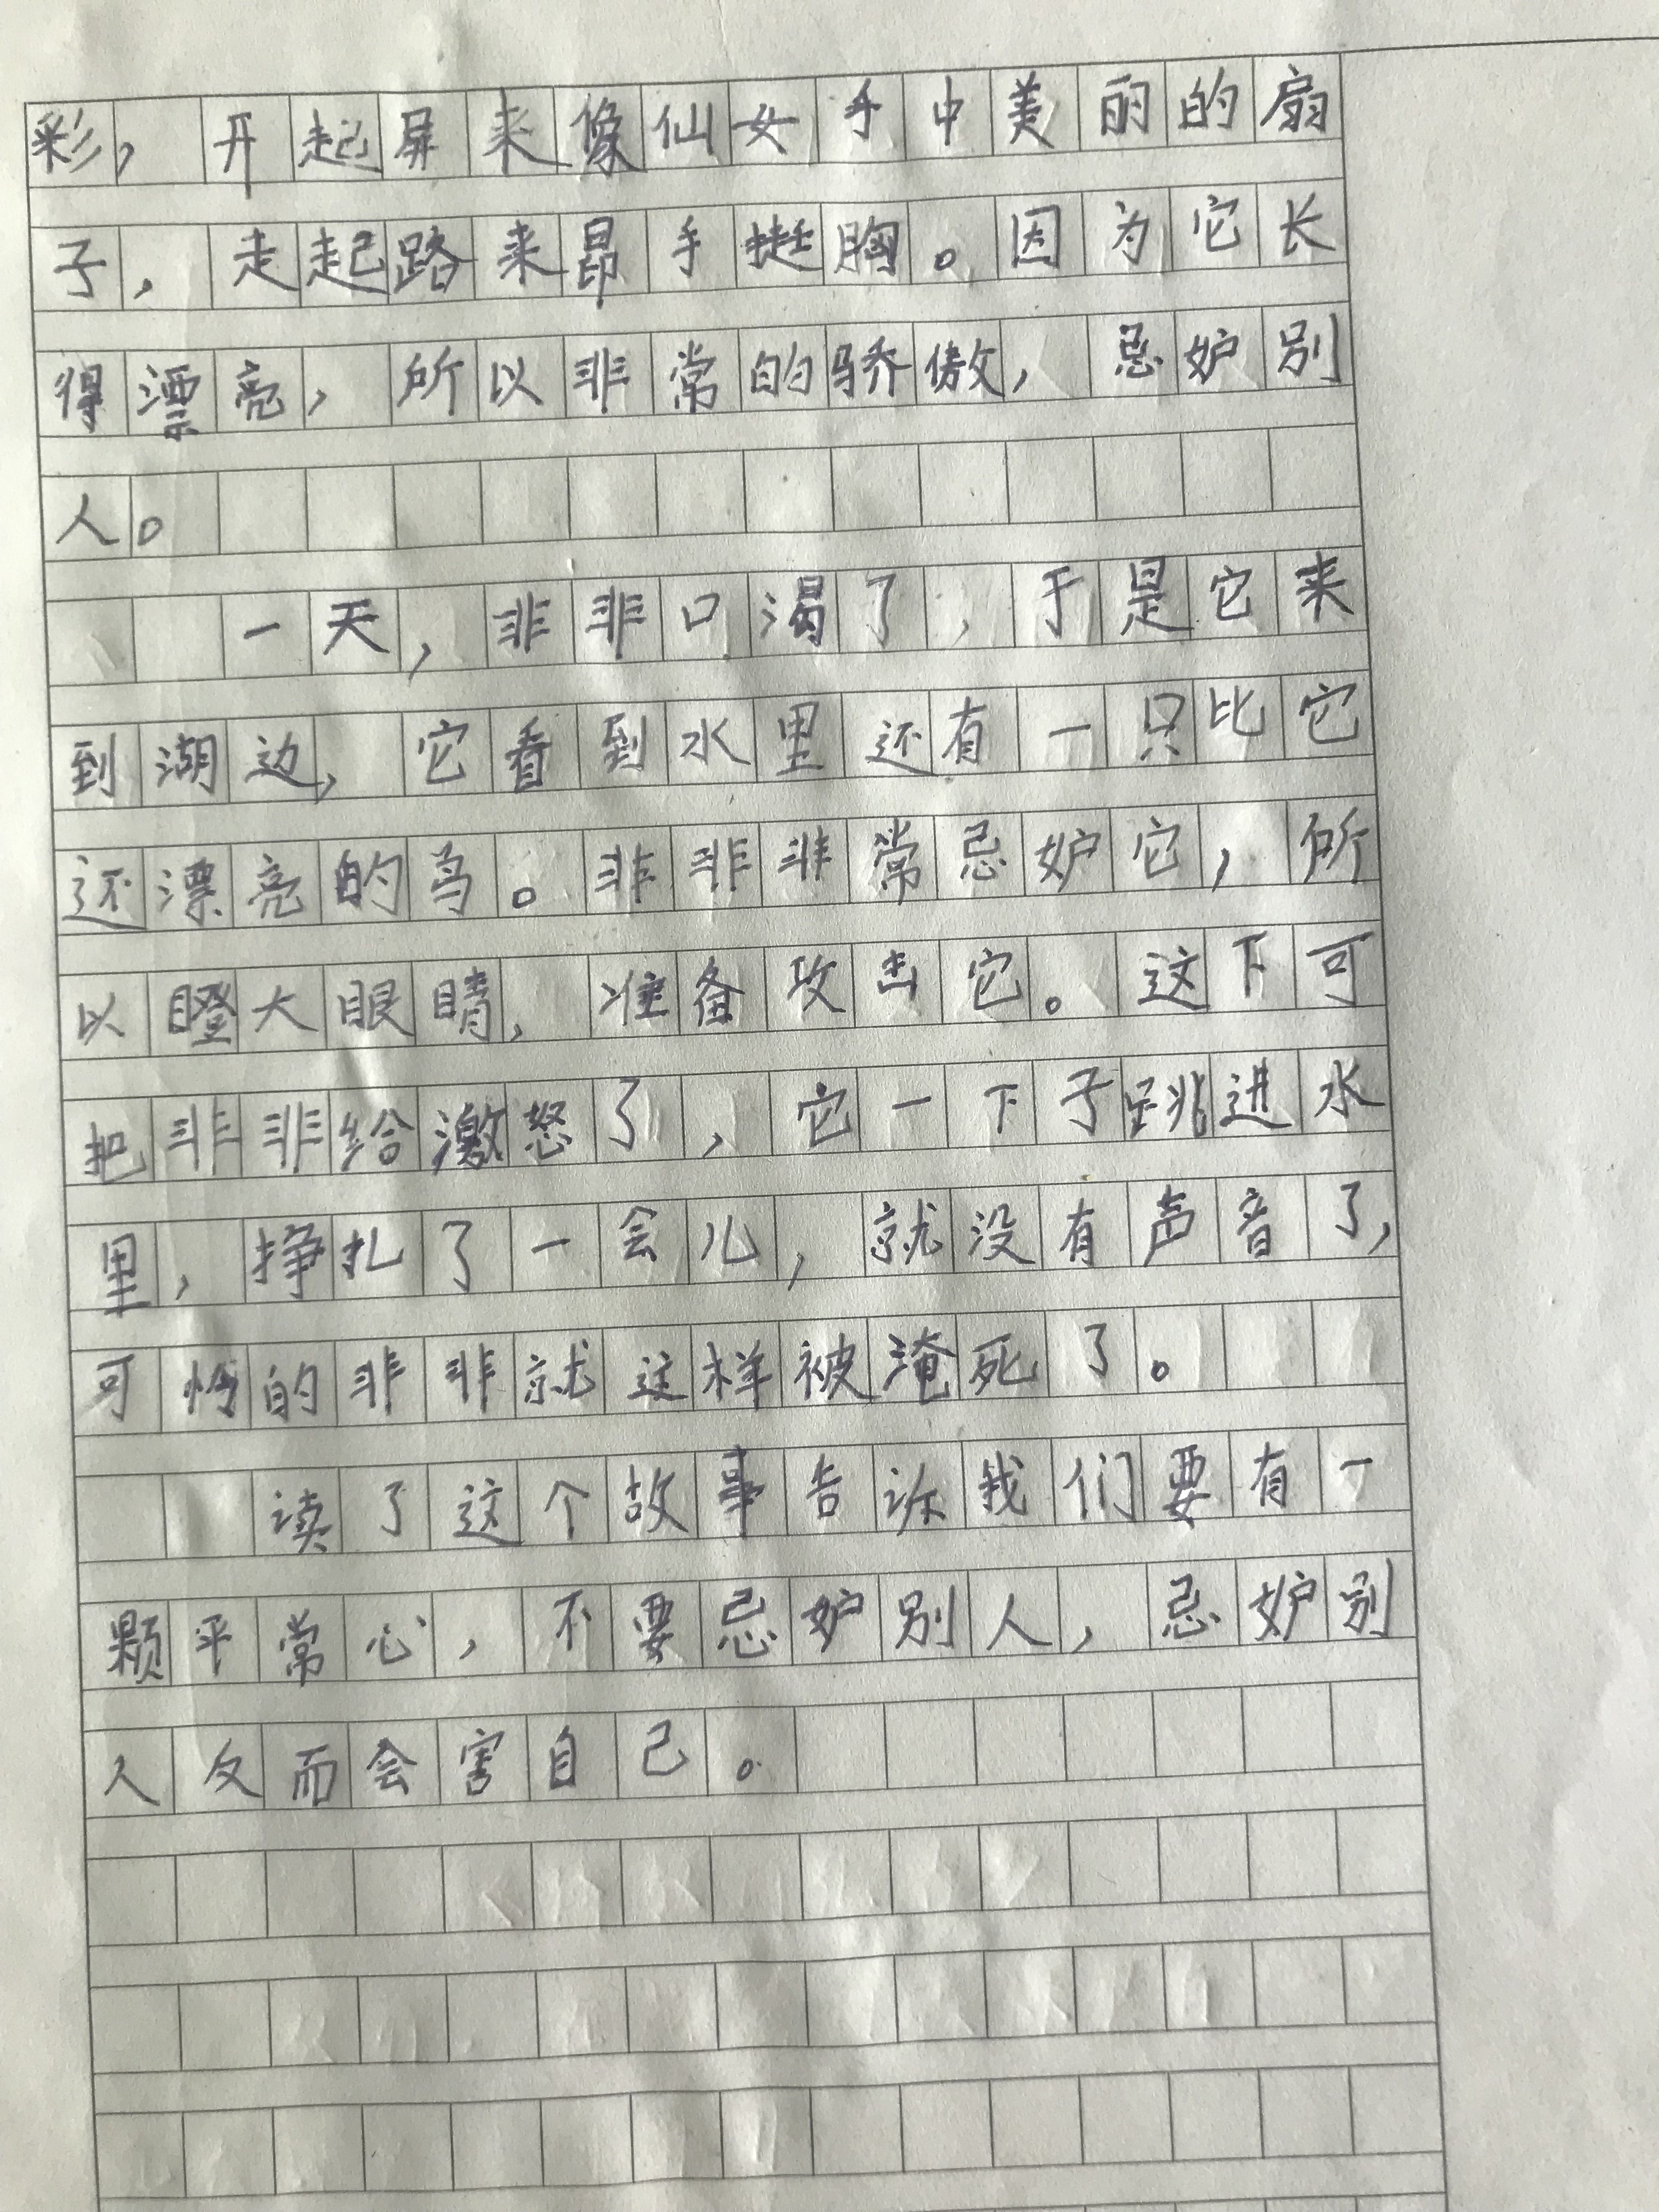 彩，开起屏来像仙女手中美丽的扇
子，走起路来昂手挺胸。因为它长
得漂亮，所以非常的骄傲，忌妒别
人。
一天，非非口渴了，于是它来
到湖边，它看到水里还有一只比它
还漂亮的鸟。非非非常忌妒它，所
以瞪大眼睛，准备攻击它。这下可
把非非给激怒了，它一下子跳进水
里，挣扎了一会儿，就没有声音了，
可怜的非非就这样被淹死了。
读了这个故事告诉我们要有一
颗平常心，不要忌妒别人，忌妒别
人反而会害自己。